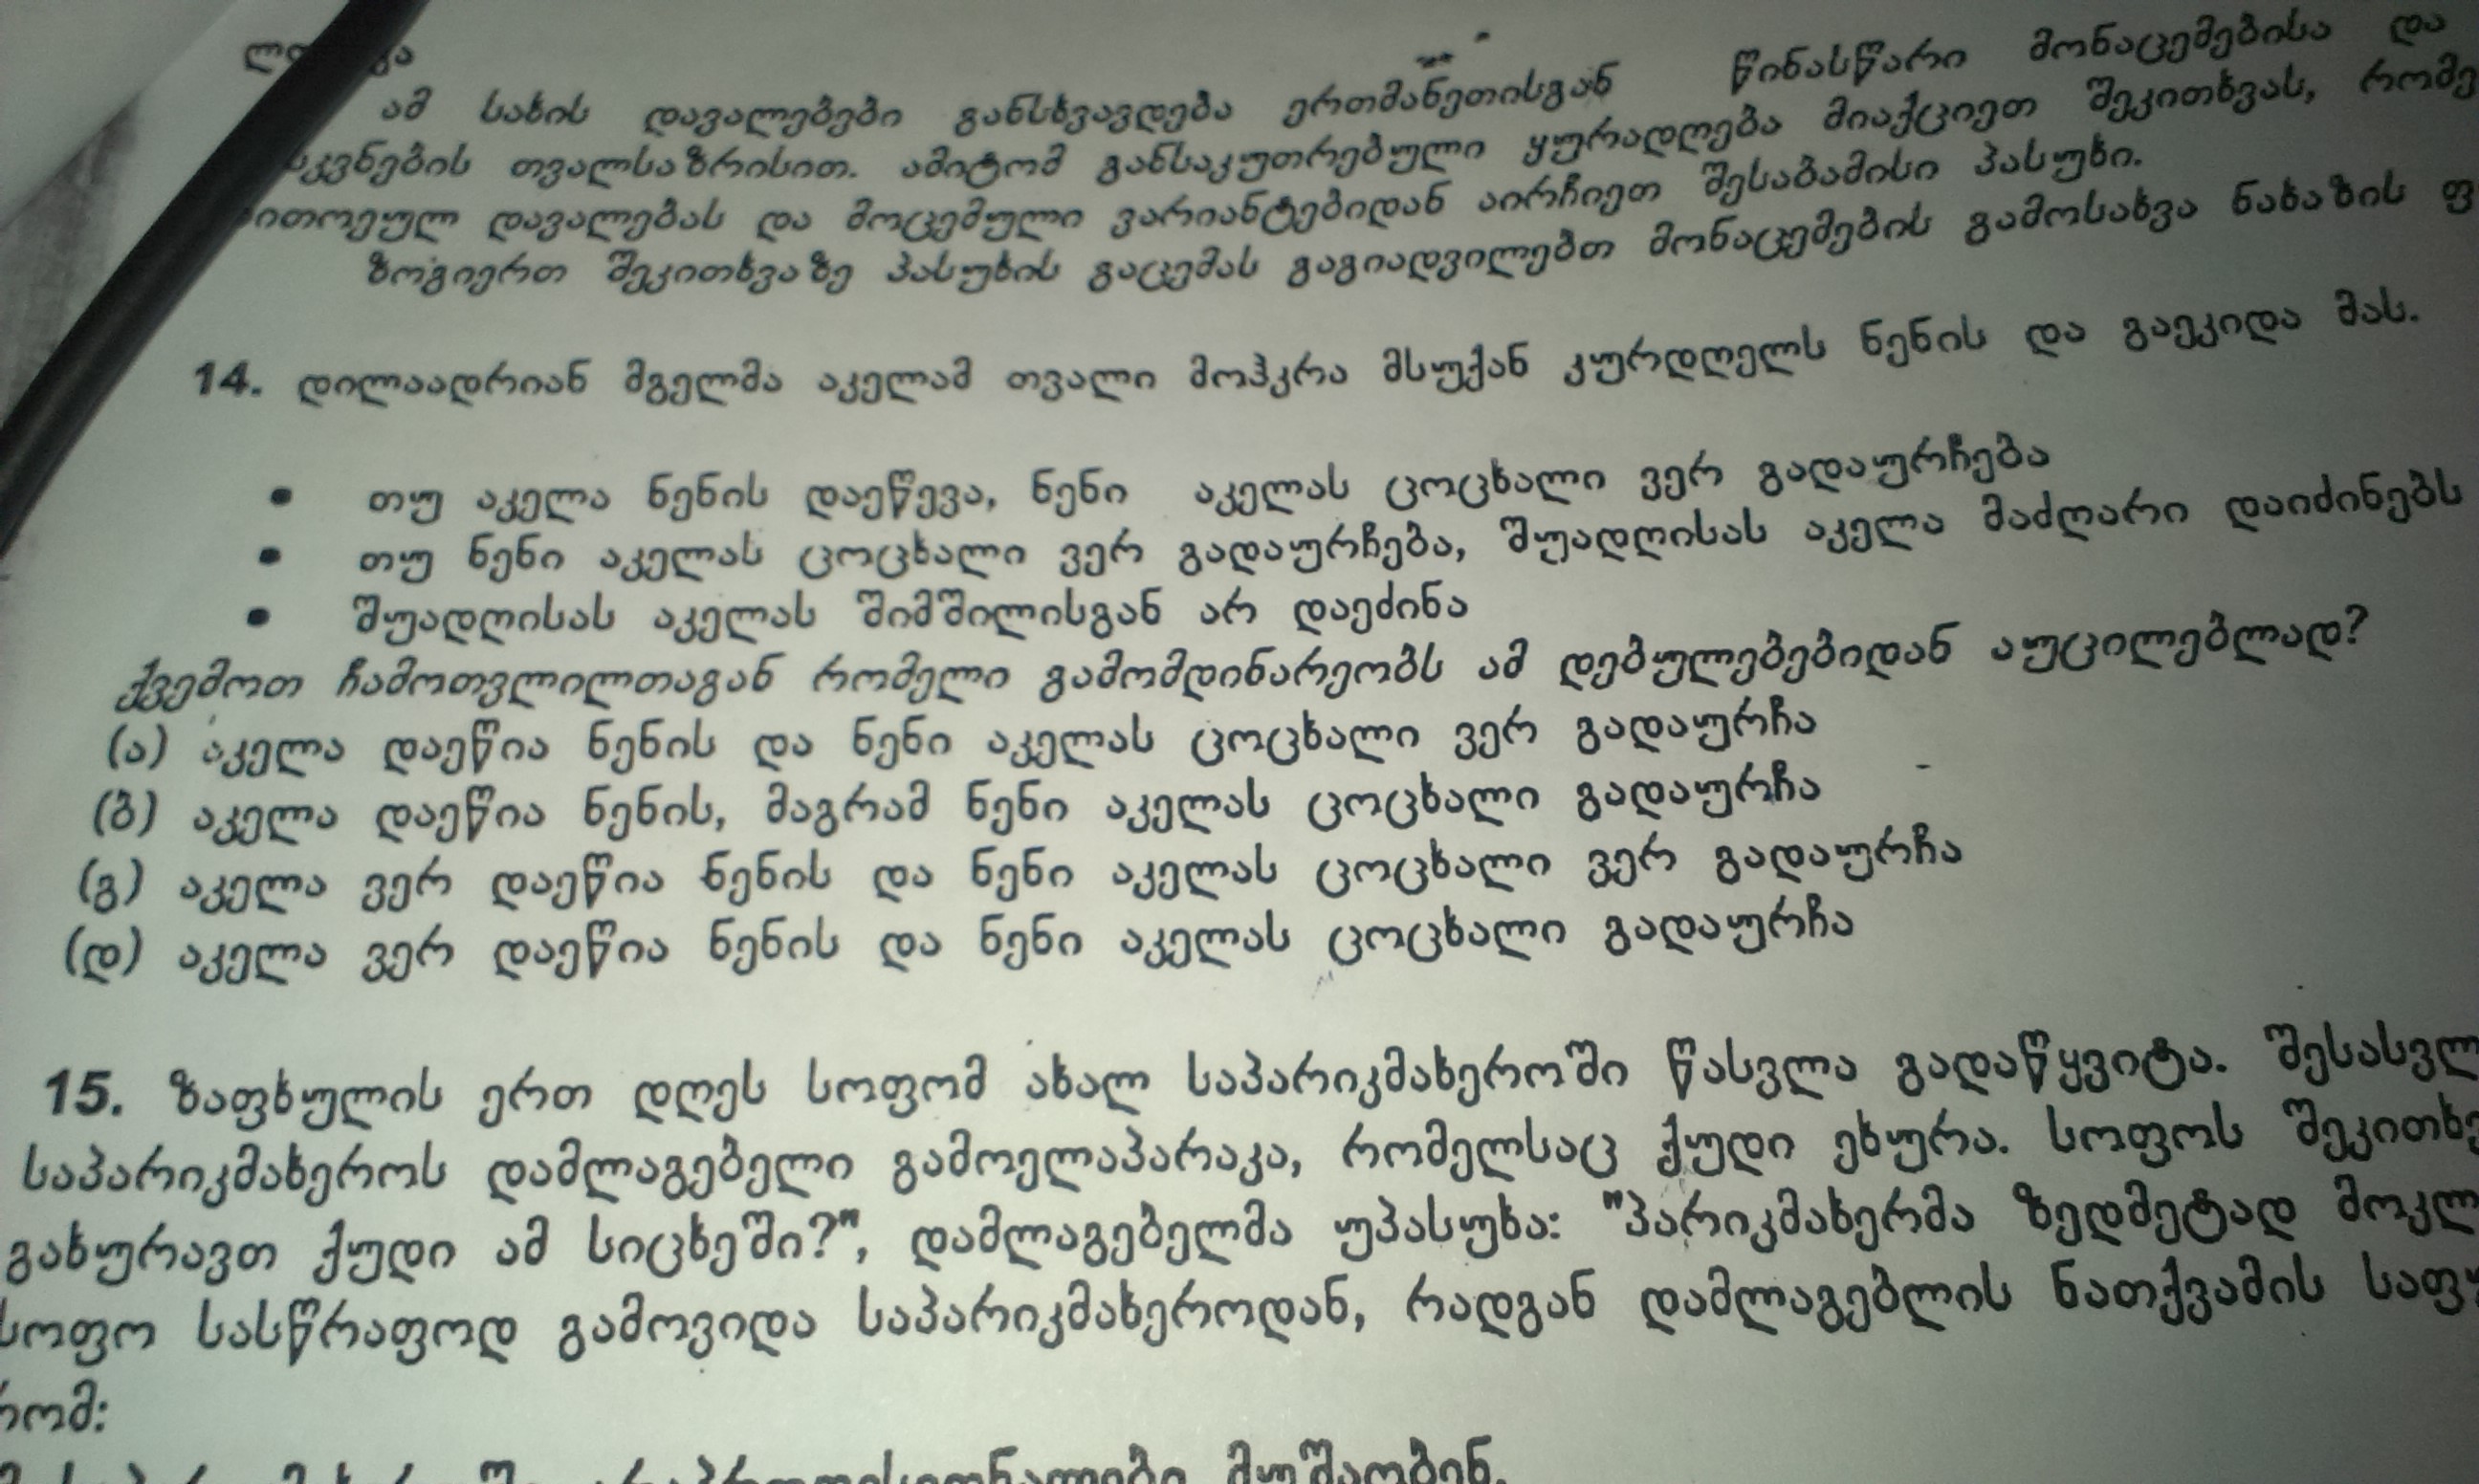 ამ სახის დავალებები განსხვავდება ერთმანეთისგან წინასწარი მონაცემებისა და
თვალსაზრისით. ამიტომ განსაკუთრებული ყურადღება მიაქციეთ შეკითხვას,
დავალებას და მოცემული ვარიანტებიდან აირჩიეთ შესაბამისი პასუხი.
ზოგიერთ შეკითხვაზე პასუხის გაცემას გაგიადვილებთ მონაცემების გამოსახვა ნახაზის
14. დილაადრიან მგელმა აკელამ თვალი მოჰკრა მსუქან კურდღელს ნენის და გაეკიდა მას.
• თუ აკელა ნენის დაეწევა, ნენი აკელას ცოცხალი ვერ გადაურჩება
• თუ ნენი აკელას ცოცხალი ვერ გადაურჩება, შუადღისას აკელა მაძღარი დაიძინებს
• შუადღისას აკელას შიმშილისგან არ დაეძინა
ქვემოთ ჩამოთვლილთაგან რომელი გამომდინარეობს ამ დებულებებიდან აუცილებლად?
(ა) აკელა დაეწია ნენის და ნენი აკელას ცოცხალი ვერ გადაურჩა
(ბ) აკელა დაეწია ნენის, მაგრამ ნენი აკელას ცოცხალი გადაურჩა
(გ) აკელა ვერ დაეწია ნენის და ნენი აკელას ცოცხალი ვერ გადაურჩა
(დ) აკელა ვერ დაეწია ნენის და ნენი აკელას ცოცხალი გადაურჩა
15. ზაფხულის ერთ დღეს სოფომ ახალ საპარიკმახეროში წასვლა გადაწყვიტა.
საპარიკმახეროს დამლაგებელი გამოელაპარაკა, რომელსაც ქუდი ეხურა. სოფოს
გახურავთ ქუდი ამ სიცხეში?", დამლაგებელმა უპასუხა: "პარიკმახერმა ზედმეტად
სოფო სასწრაფოდ გამოვიდა საპარიკმახეროდან, რადგან დამლაგებლის ნათქვამის
რომ:
მუშაობენ.